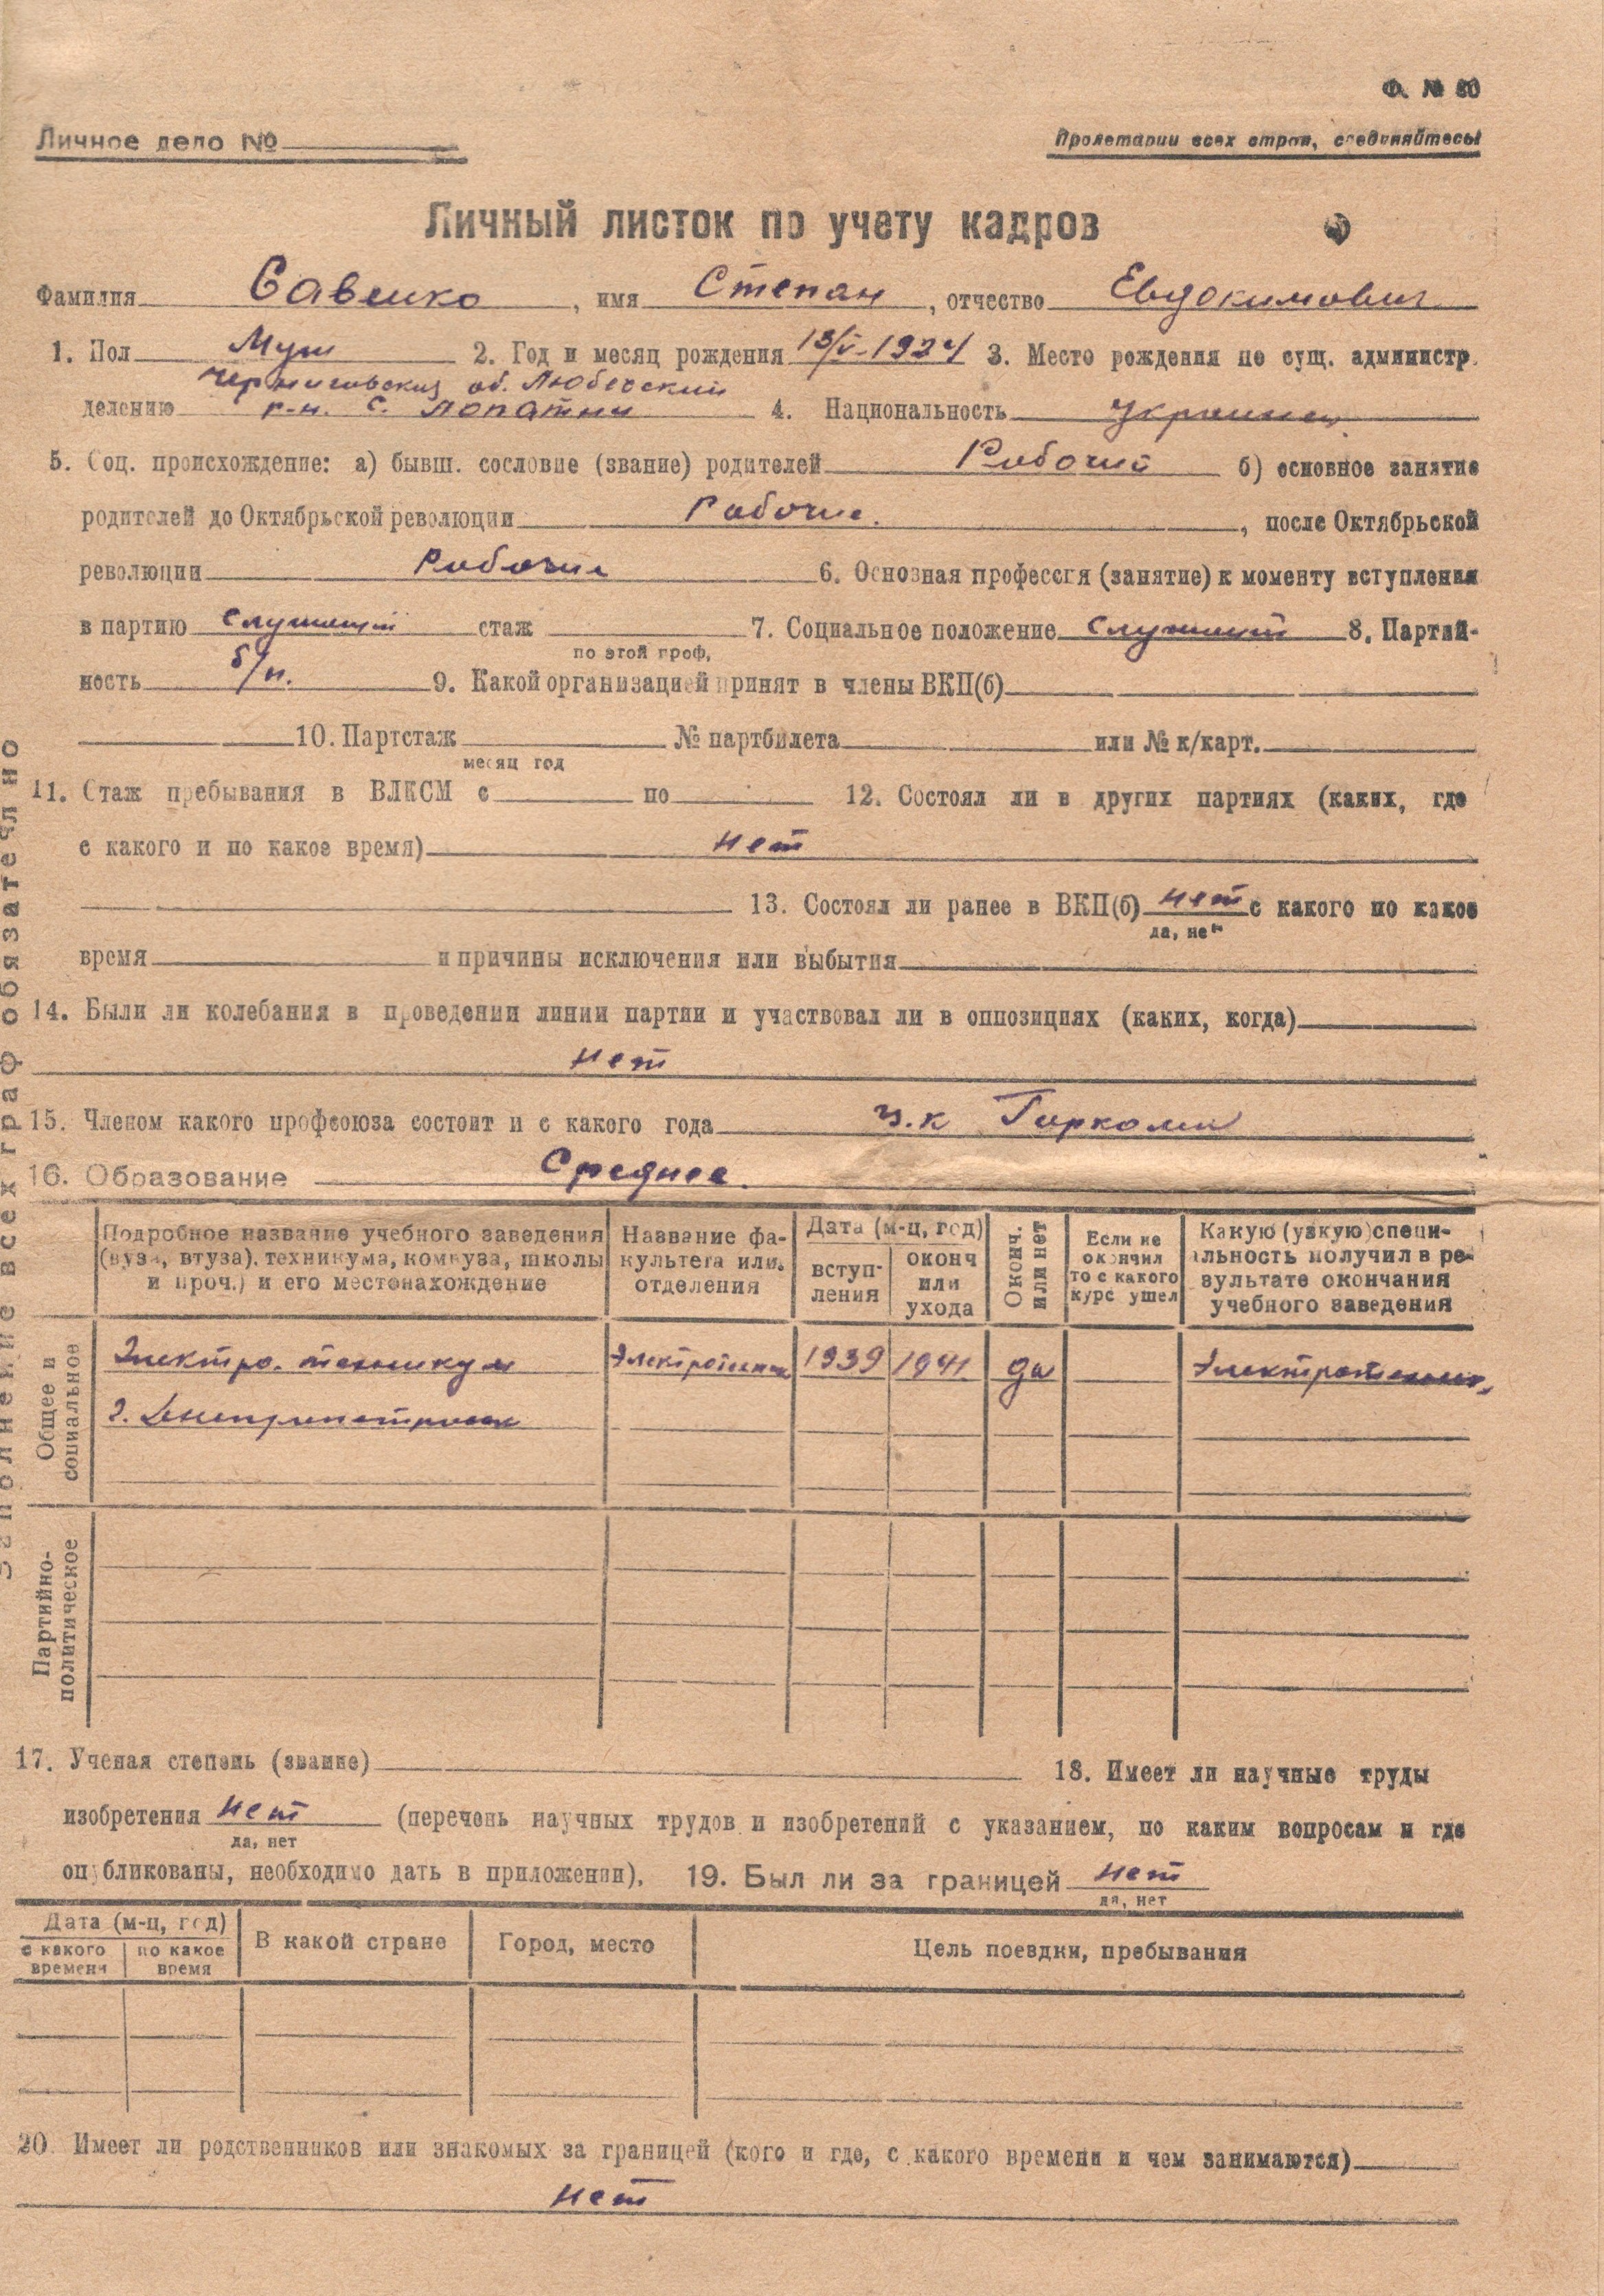 Ф. № 80
Личное дело №
Пролетарии всех стран, соединяйтесь!
Личный листок по учету кадров
Фамилия Савенко, имя Степан, отчество Евдокимович
1. Пол Муж 2. Год и месяц рождения 13/V-1924 3. Место рождения по сущ. администр.
Черниговская об. Любечский
делению р-н. с. Лопатни 4. Национальность Украинец
5. Соц. происхождение: а) бывш. сословие (звание) родителей Рабочий б) основное занятие
родителей до Октябрьской революции Рабочие, после Октябрьской
революции Рабочие 6. Основная профессия (занятие) к моменту вступления
в партию служащий стаж 7. Социальное положение служащий 8. Партий-
по этой проф.
ность б/п. 9. Какой организацией принят в члены ВКП(б)
10. Партстаж № партбилета или № к/карт.
месяц год
11. Стаж пребывания в ВЛКСМ с по 12. Состоял ли в других партиях (каких, где
с какого и по какое время) нет
13. Состоял ли ранее в ВКП(б) нет с какого по какое
да, нет
время и причины исключения или выбытия
14. Были ли колебания в проведении линии партии и участвовал ли в оппозициях (каких, когда)
нет
15. Членом какого профсоюза состоит и с какого года
16. Образование Среднее.
Подробное название учебного заведения (вуза, втуза), техникума, комвуза, школы и проч.) и его местонахождение
Название факультета или отделения
Дата (м-ц, год)
вступления
оконч или ухода
Оконч. или нет
Если не окончил то с какого курс ушел
Какую (узкую) специальность получил в результате окончания учебного заведения
Общее и социальное
Электро. техникум Электротехник 1939 1941 да Электротехник
г. Днепропетровск
Партийно-политическое
17. Ученая степень (звание) 18. Имеет ли научные труды
изобретения нет (перечень научных трудов и изобретений с указанием, по каким вопросам и где
да, нет
опубликованы, необходимо дать в приложении). 19. Был ли за границей нет
да, нет
Дата (м-ц, год)
с какого времени
по какое время
В какой стране
Город, место
Цель поездки, пребывания
20. Имеет ли родственников или знакомых за границей (кого и где, с какого времени и чем занимаются)
нет
Заполнение всех граф обязательно